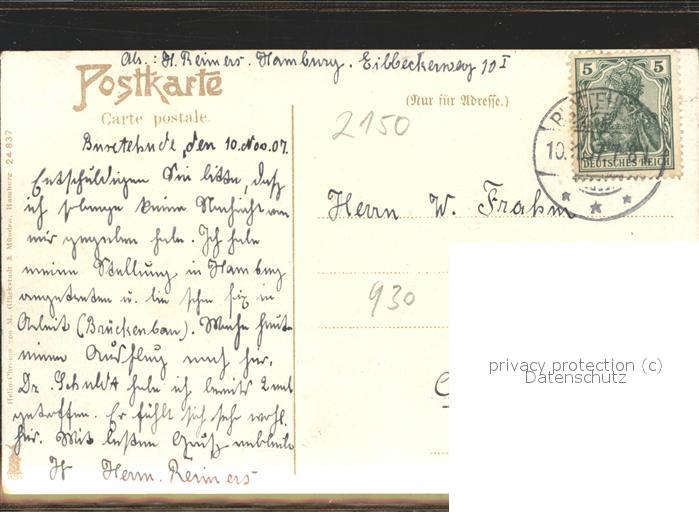 Abs.: H. Reimers. Hamburg. Eilbeckerweg 10 I
Postkarte
Carte postale.
(Nur für Adresse.)
5 5
DEUTSCHES REICH
2150
Buxtehude, den 10. Nov. 07.
Entschuldigen Sie bitte, daß
ich solange keine Nachricht von
mir gegeben habe. Ich habe
meine Stellung in Hamburg
angetreten u. bin schon fix in
Arbeit (Brückenbau). Mache heute
einen Ausflug nach hier.
Dr. Schuldt habe ich bereits 2 mal
getroffen. Er fühlt sich sehr wohl
hier. Mit bestem Gruß verbleibe
Ihr Herm. Reimers
Herrn W. Frahm
930
privacy protection (c)
Datenschutz
Knackstedt & Münden, Hamburg 24 837